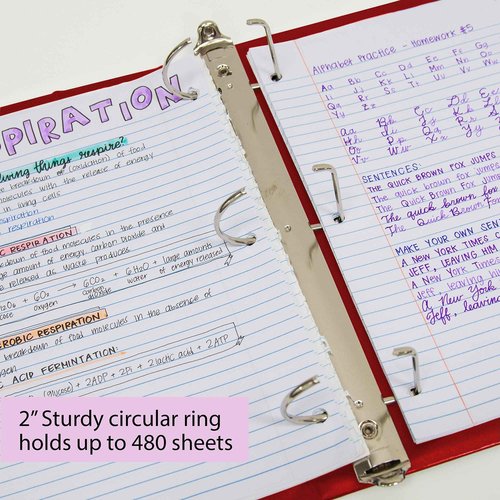 SPIRATION
living things respire?
breakdown or (oxidation) of food
molecules with the release of energy
in living cells
respiration
respiration
RESPIRATION
down of food molecules in the presence
large amount of energy. Carbon dioxide and
released as waste products
6O₂ → 6CO₂ + 6H₂O + large amounts
oxygen carbon dioxide water of energy released
EROBIC RESPIRATION
breakdown of food molecules in the absence of
ACID FERMINTATION:
(glucose) + 2ADP + 2Pi → 2 lactic acid + 2ATP
Alphabet Practice - Homework #5
Aa Bb Cc Dd Ee Ff Gg
Ii Jj Kk Ll Mm Nn
Qq Rr Ss Tt Uu
Aa Bb Cc Dd Ee
Hh Ii Jj Kk Ll
Oo Pp Qq Rr Ss
Vv Ww Xx
SENTENCES
THE QUICK BROWN FOX JUMPS
The quick brown fox jumps
The Quick Brown Fox Jumps
The quick brown fox
The Quick Brown Fox
MAKE YOUR OWN SENTEN
A NEW YORK TIMES
JEFF, LEAVING HIM
A New York Times
Jeff, leaving
A New York
Jeff, leaving
2” Sturdy circular ring
holds up to 480 sheets